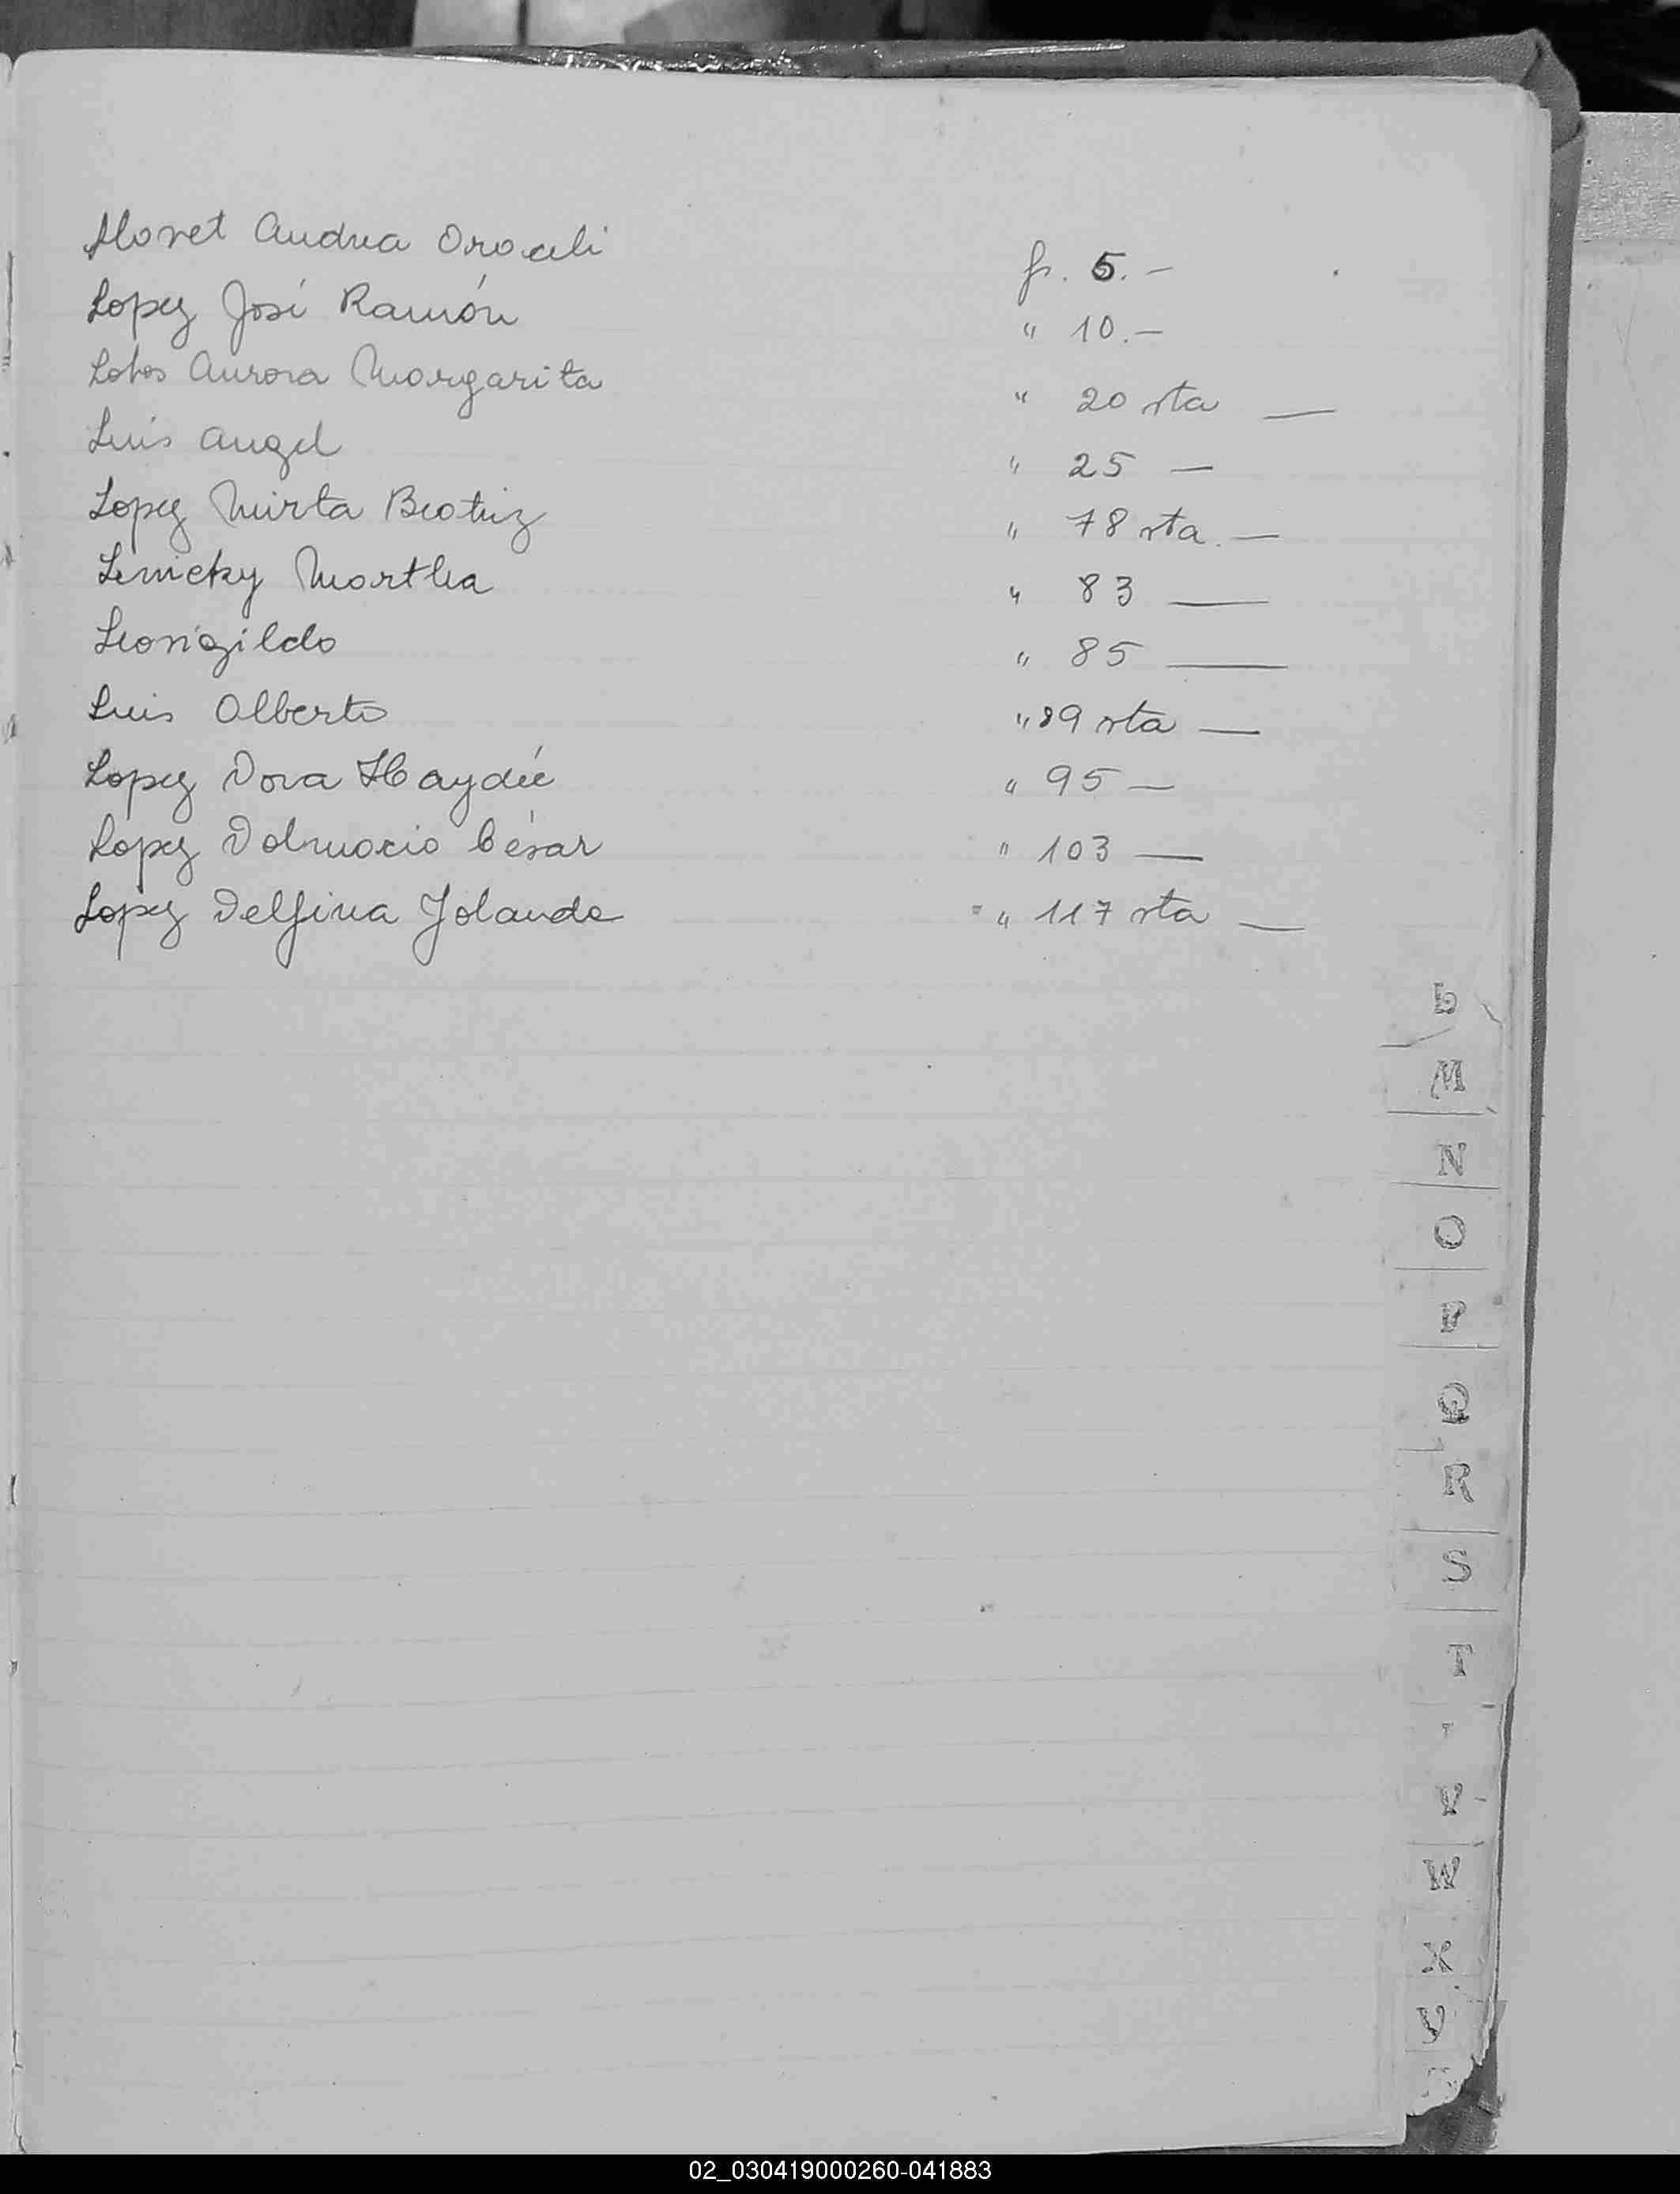 Llovet Andrea Oraceli f. 5.-
Lopez José Ramón " 10.-
Lobos Aurora Margarita " 20 vta —
Luis Angel " 25 —
Lopez Mirta Beatriz " 78 vta. —
Lenicky Martha " 83 —
Leovigildo " 85 —
Luis Alberto " 89 vta —
Lopez Dora Haydée " 95 —
Lopez Dalmacio César " 103 —
Lopez Delfina Jolanda " 117 vta —
L
M
N
O
P
Q
R
S
T
V
W
X
02_030419000260-041883